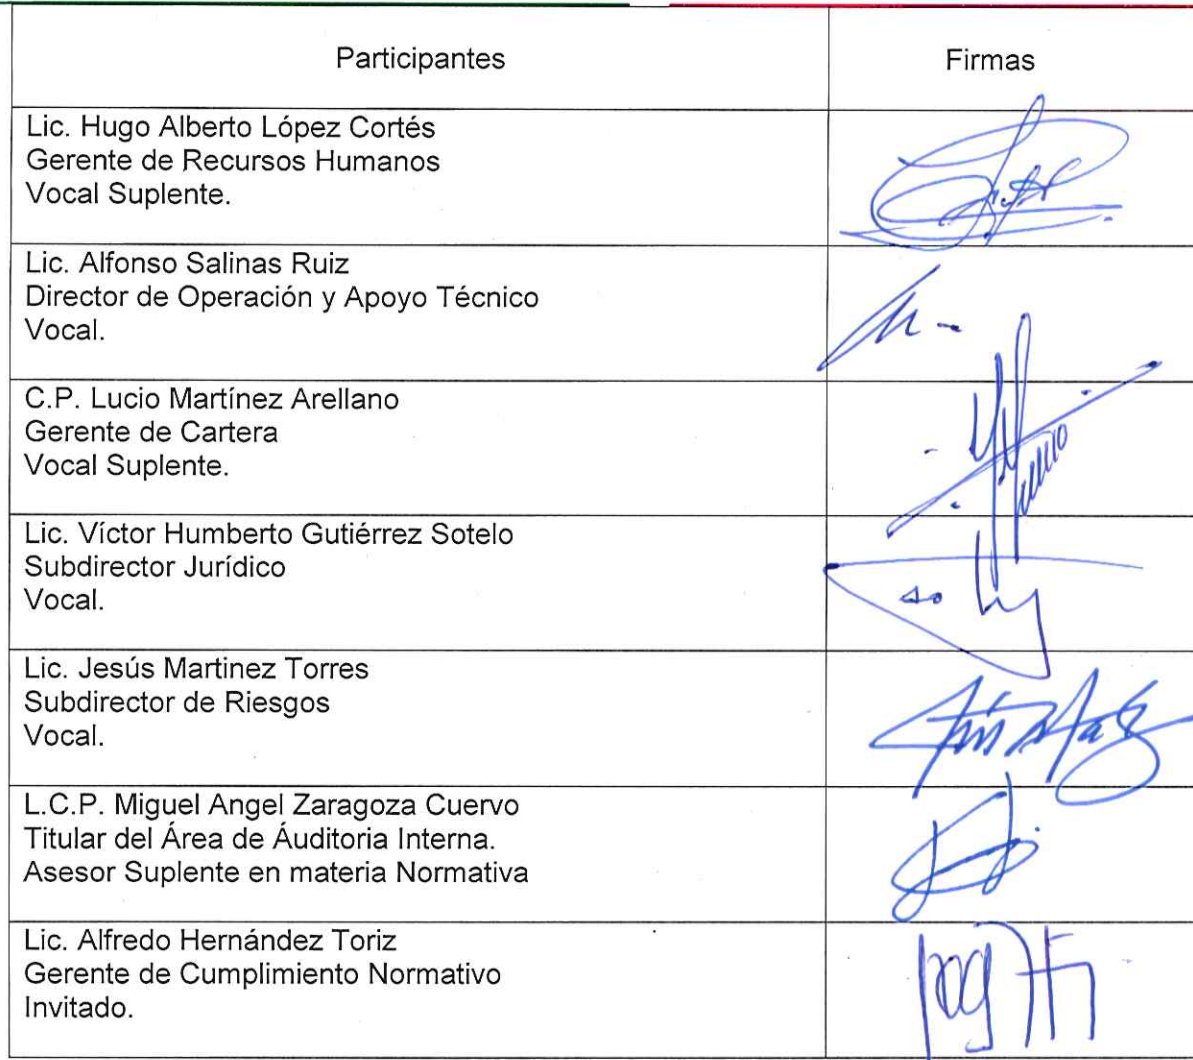 Participantes
Firmas
Lic. Hugo Alberto López Cortés
Gerente de Recursos Humanos
Vocal Suplente.
Lic. Alfonso Salinas Ruiz
Director de Operación y Apoyo Técnico
Vocal.
C.P. Lucio Martínez Arellano
Gerente de Cartera
Vocal Suplente.
Lic. Víctor Humberto Gutiérrez Sotelo
Subdirector Jurídico
Vocal.
Lic. Jesús Martinez Torres
Subdirector de Riesgos
Vocal.
L.C.P. Miguel Angel Zaragoza Cuervo
Titular del Área de Áuditoria Interna.
Asesor Suplente en materia Normativa
Lic. Alfredo Hernández Toriz
Gerente de Cumplimiento Normativo
Invitado.